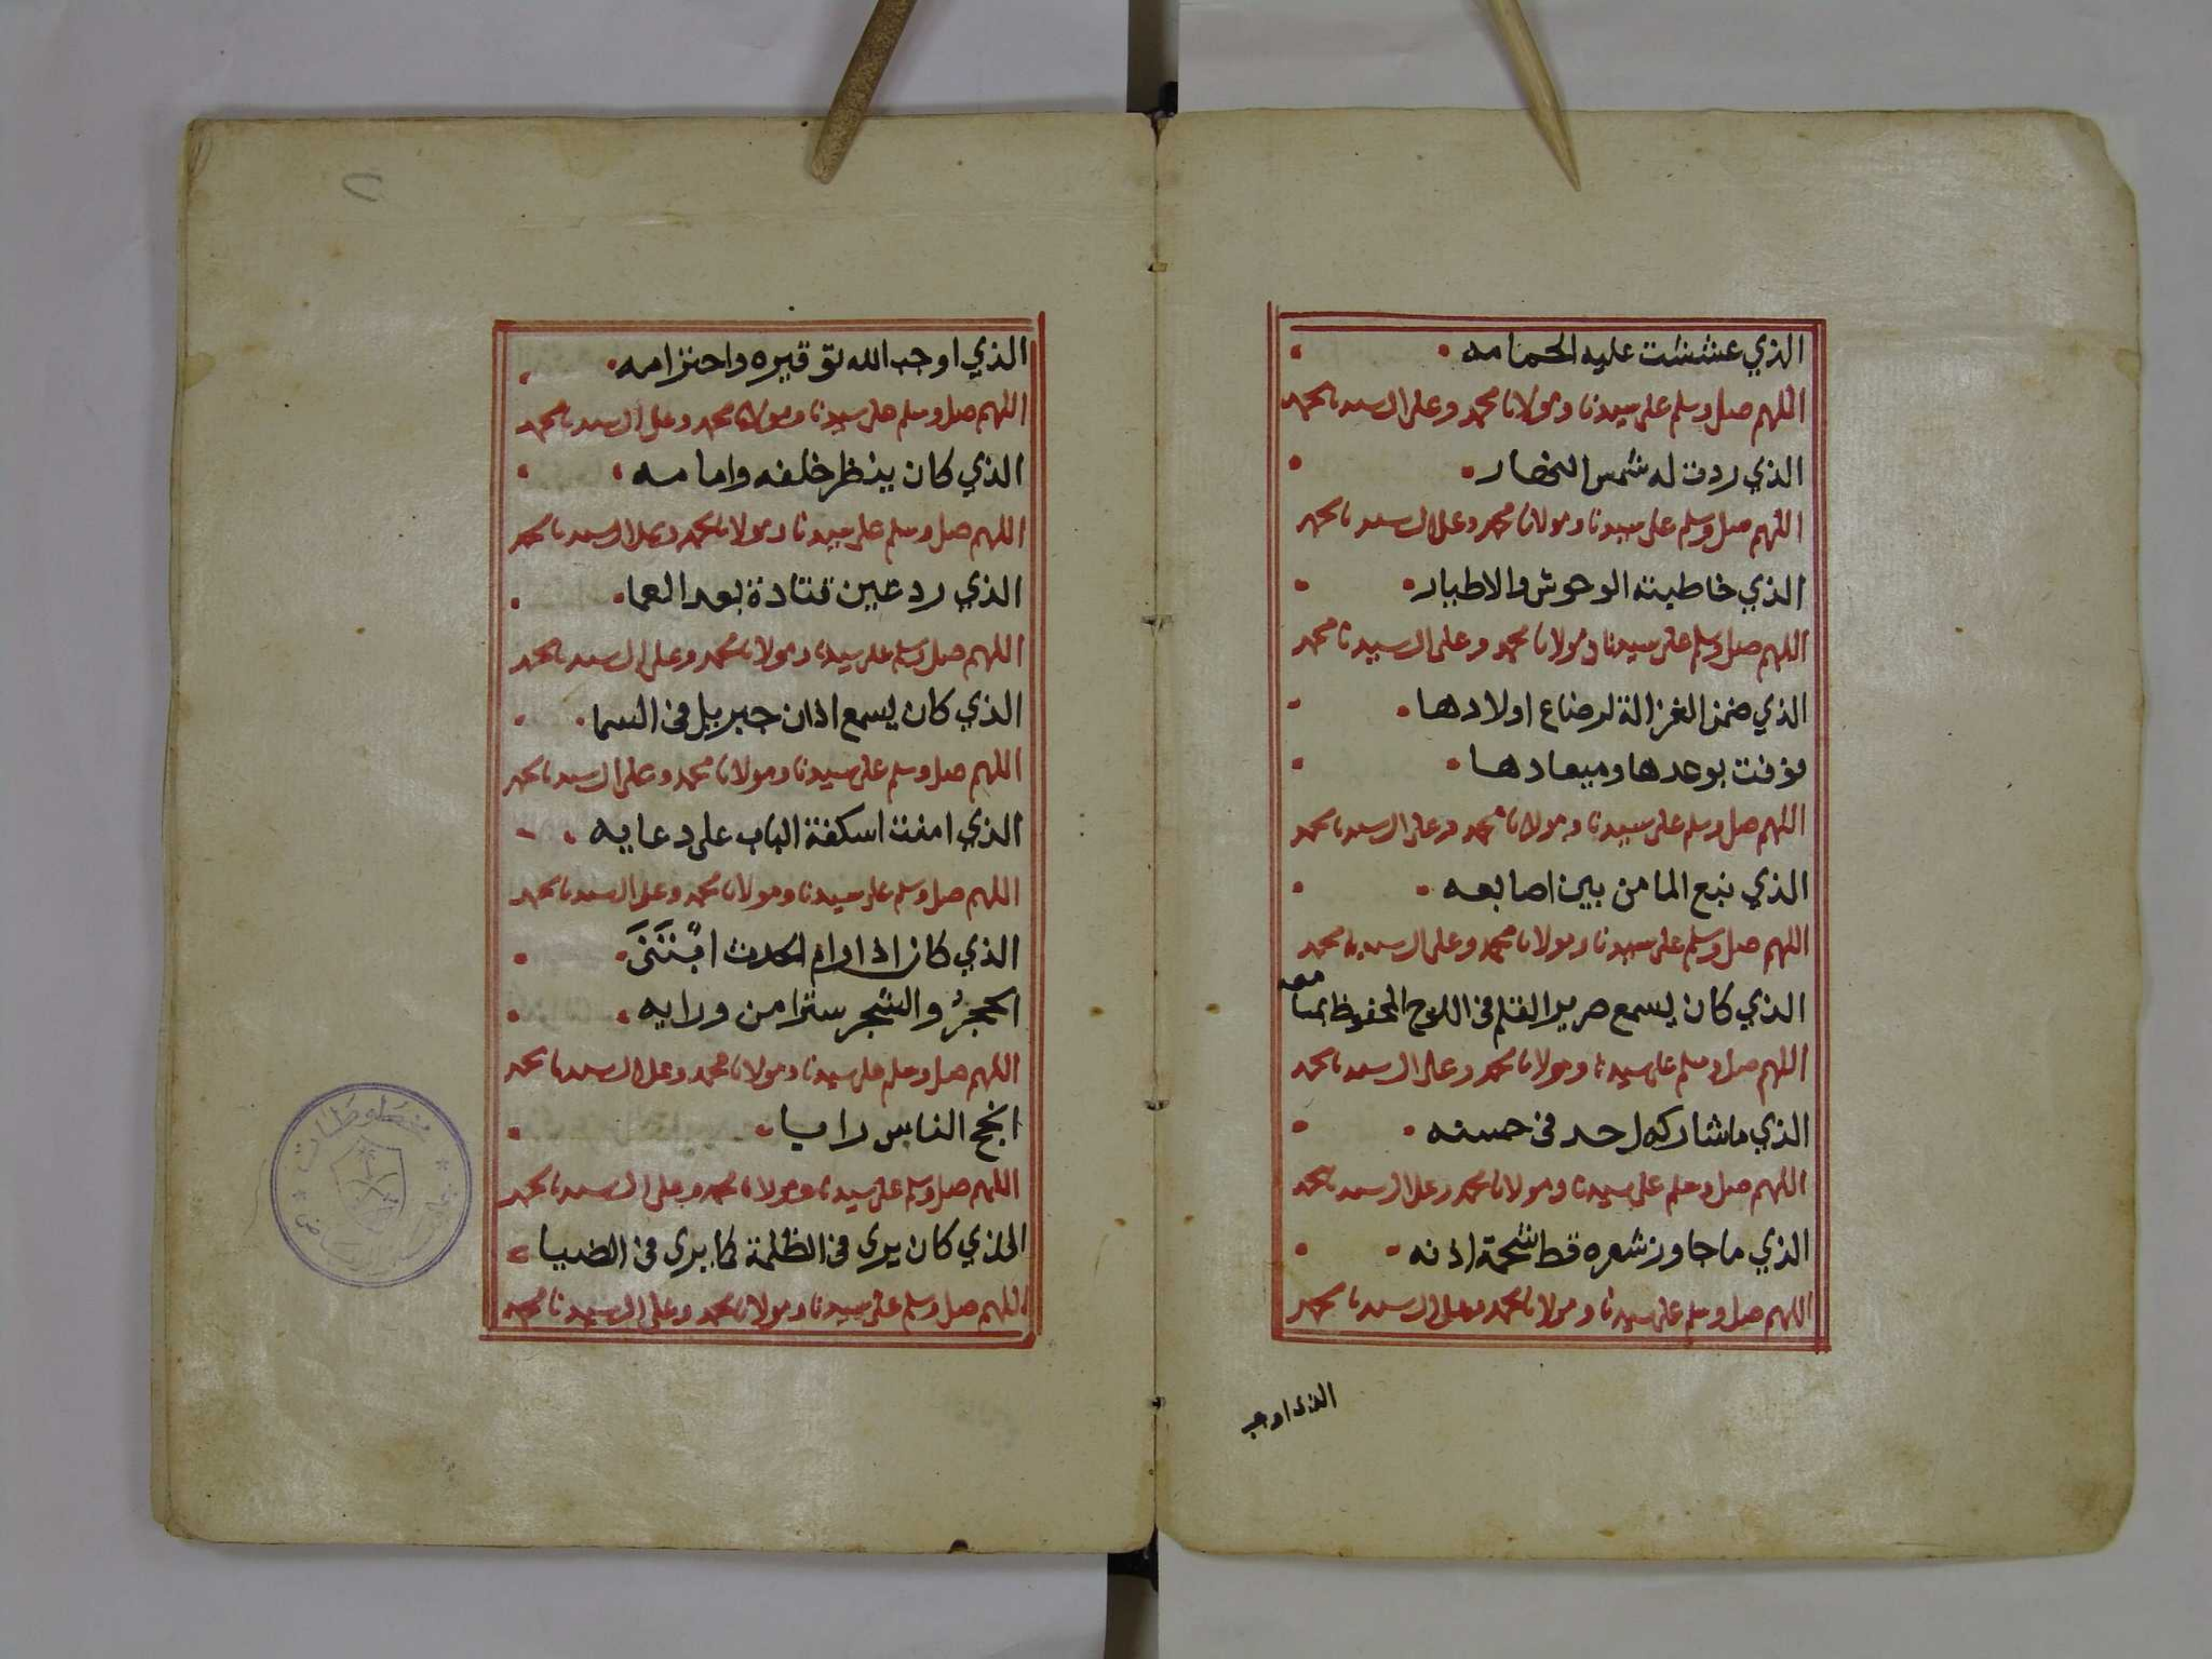 الذي عششت عليه الحمامه
اللهم صل وسلم على سيدنا ومولانا محمد وعلى ال سيدنا محمد
الذي ردت له شمس النهار
اللهم صل وسلم على سيدنا ومولانا محمد وعلى ال سيدنا محمد
الذي خاطبته الوحوش والاطيار
اللهم صل وسلم على سيدنا ومولانا محمد وعلى ال سيدنا محمد
الذي ضمن الغزالة لرضاع اولادها
فوفت بوعدها وميعادها
اللهم صل وسلم على سيدنا ومولانا محمد وعلى ال سيدنا محمد
الذي نبع الما من بين اصابعه
اللهم صل وسلم على سيدنا ومولانا محمد وعلى ال سيدنا محمد
الذي كان يسمع صرير القلم في اللوح المحفوظ بمسامعه
اللهم صل وسلم على سيدنا ومولانا محمد وعلى ال سيدنا محمد
الذي ما شاركه احد في حسنه
اللهم صل وسلم على سيدنا ومولانا محمد وعلى ال سيدنا محمد
الذي ما جاوز شعره قط شحمة اذنه
اللهم صل وسلم على سيدنا ومولانا محمد وعلى ال سيدنا محمد
الذي اوجب
الذي اوجب الله توقيره واحترامه
اللهم صل وسلم على سيدنا ومولانا محمد وعلى ال سيدنا محمد
الذي كان ينظر خلفه وامامه
اللهم صل وسلم على سيدنا ومولانا محمد وعلى ال سيدنا محمد
الذي رد عين قتادة بعد العما
اللهم صل وسلم على سيدنا ومولانا محمد وعلى ال سيدنا محمد
الذي كان يسمع اذان جبريل في السما
اللهم صل وسلم على سيدنا ومولانا محمد وعلى ال سيدنا محمد
الذي امنت اسكفة الباب على دعايه
اللهم صل وسلم على سيدنا ومولانا محمد وعلى ال سيدنا محمد
الذي كان اذا رام الحدث
الحجرُ والشجر سترا من ورايه
اللهم صل وسلم على سيدنا ومولانا محمد وعلى ال سيدنا محمد
انجح الناس رايا
اللهم صل وسلم على سيدنا ومولانا محمد وعلى ال سيدنا محمد
الذي كان يرى في الظلمة كما يرى في الضيا
اللهم صل وسلم على سيدنا ومولانا محمد وعلى ال سيدنا محمد
مخطوطات